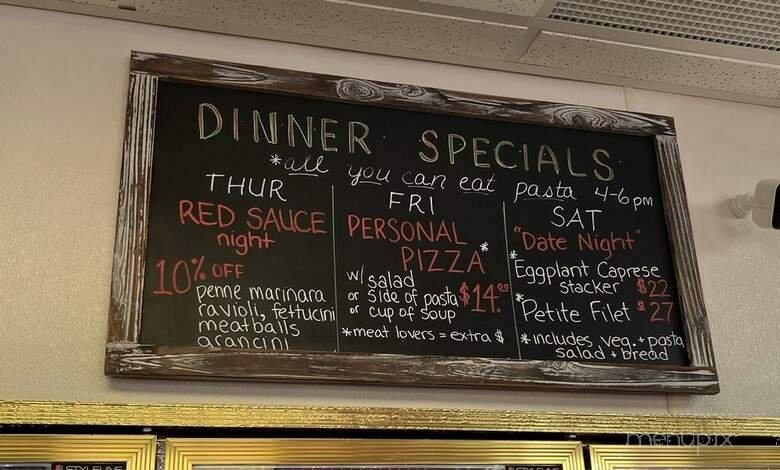 DINNER SPECIALS
*all you can eat pasta 4-6pm
THUR
RED SAUCE
night
10% OFF
penne marinara
ravioli, fettucini
meatballs
arancini
FRI
PERSONAL
PIZZA*
w/ salad
or side of pasta
or cup of soup
$14.00
*meat lovers = extra $
SAT
"Date Night"
*Eggplant Caprese
stacker $22
*Petite Filet $27
*includes veg. + pasta
salad + bread
STYLELINE
menupix